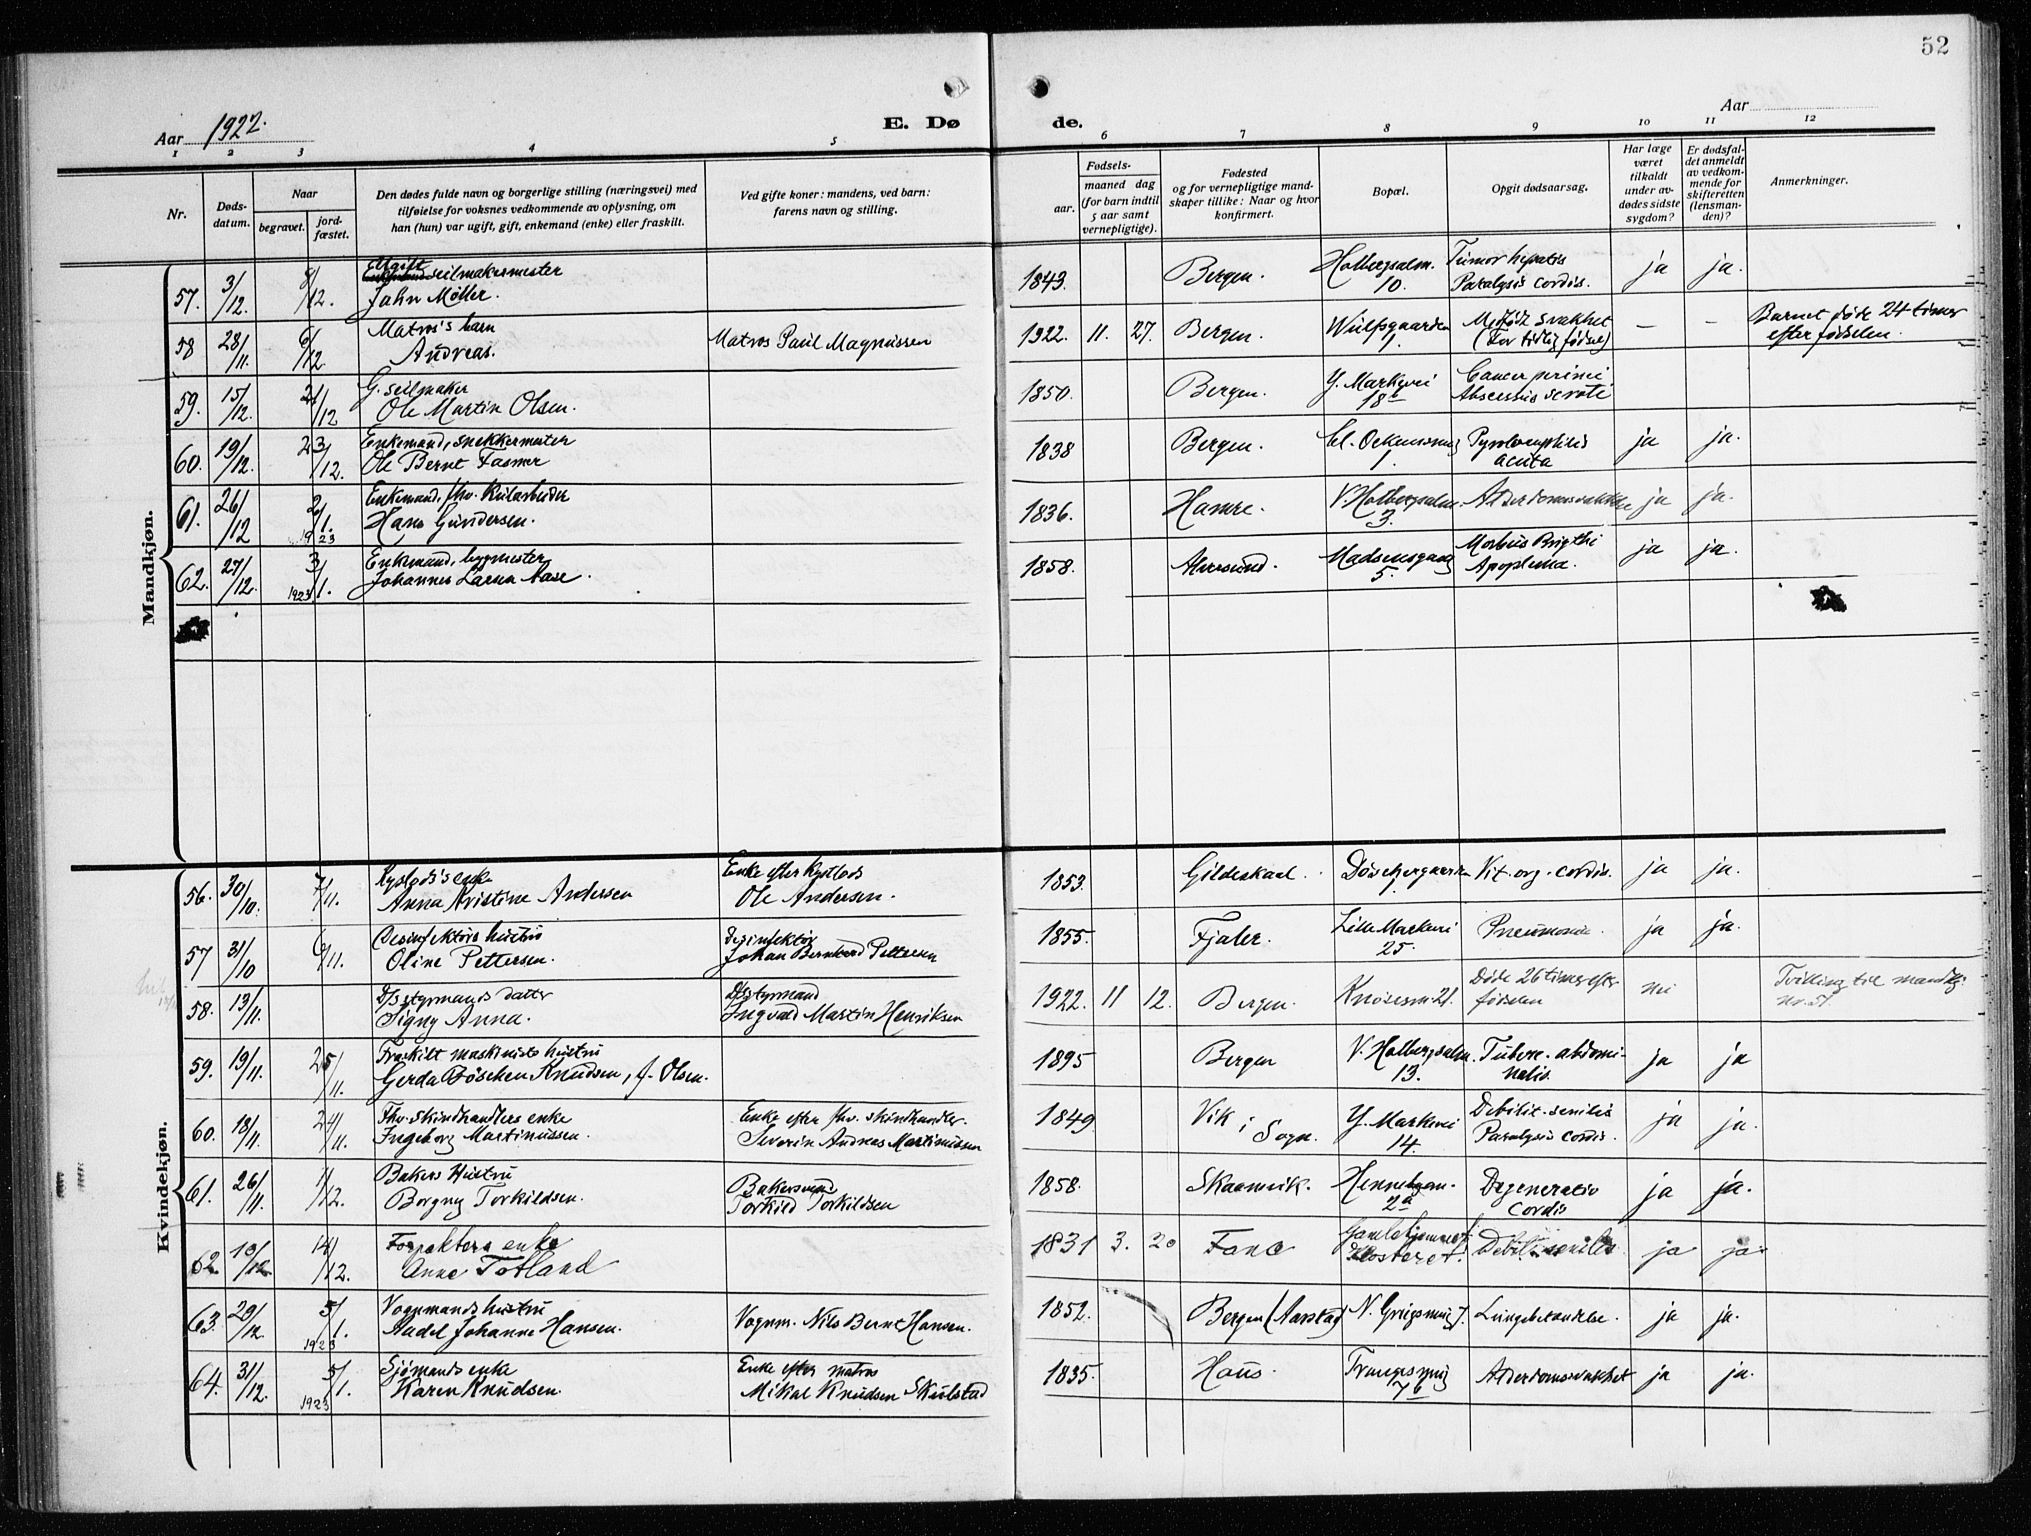 52
Aar 1922.
E. Dø
de.
Aar
1 2 3 4 5 6 7 8 9 10 11 12
Nr.
Døds-
datum.
Naar
begravet.
jord-
fæstet.
Den dødes fulde navn og borgerlige stilling (næringsvei) med
tilføielse for voksnes vedkommende av oplysning, om
han (hun) var ugift, gift, enkemand (enke) eller fraskilt.
Ved gifte koner: mandens, ved barn:
farens navn og stilling.
Fødsels-
aar.
maaned dag
(for barn indtil
5 aar samt
vernepligtige).
Fødested
og for vernepligtige mand-
skaper tillike: Naar og hvor
konfirmert.
Bopæl.
Opgit dødsaarsag.
Har læge
været
tilkaldt
under av-
dødes sidste
sygdom?
Er dødsfal-
det anmeldt
av vedkom-
mende for
skifteretten
(lensman-
den)?
Anmerkninger.
Mandkjøn.
57. 3/12. 8/12. Ugift seilmakermester
Jahn Møller.
1843. Bergen. Holbergsalm.
10.
Tumor hepatis
Paralysis cordis.
ja ja.
58 28/11. 6/12 Matros's barn
Andreas.
Matros Paul Magnussen
1922. 11. 27. Bergen. Wulfsgaarden
1.
Medfødt svakhet
(For tidlig fødsel)
— —
Barnet døde 24 timer
efter fødselen.
59. 15/12. 21/12 G. seilmaker
Ole Martin Olsen.
1850. Bergen. Y. Markevei
18b
Cancer perinei
Abscessus scroti
60. 19/12. 23/12. Enkemand, snekkermester
Ole Bernt Fasmer
1838 Bergen.
1.
acuta
ja ja.
61. 26/12 2/1. 1923 Enkemand, fhv.
Hans Gundersen.
1836. Hamre. V. Holbergsalm.
3.
Alderdomssvakhet ja ja.
62. 27/12. 3/1. 1923 Enkemand, bygmester
Johannes Larsen Aase.
1858. Alversund. Madsensgaard
5.
Morbus Brigthi
ja ja.
Kvindekjøn.
56. 30/10. 7/11. enke
Anna Kristine Andersen
Enke efter
Ole Andersen.
1853. Gildeskaal. Vit. org. cordis. ja ja.
57 31/10 6/11. Desinfektørs hustru
Oline Pettersen.
Desinfektør
Johan Bernhard Pettersen
1855. Fjaler. Lille Markevei
25.
Pneumonie. ja ja.
58. 13/11. D/s styrmands datter
Signy Anna.
D/s styrmand
Ingvald Martin Henriksen
1922. 11 12. Bergen. Knøsesm. 21. Døde 26 timer efter
fødselen
nei
Tvilling til mandkj.
nr. 51.
59. 19/11. 25/11. Fraskilt maskinists hustru
Gerda Bøschen Knudsen, f. Olsen.
1895 Bergen V. Holbergsalm.
13.
Tuberc. abdomi-
nalis.
ja ja
60. 18/11. 24/11. Fhv. skindhandlers enke
Ingeborg Martinussen.
Enke efter fhv. skindhandler.
Severin Andreas Martinussen
1849 Vik i Sogn. Y. Markevei
14.
Debilit. senilis
Paralysis cordis.
ja ja.
61. 26/11. 1/12. Bakers hustru
Borgny Torkildsen.
Bakersvend
Torkild Torkildsen
1858. Skaanevik.
2a
Degeneratio
cordis
ja ja.
62. 10/12 14/12. Forpakters enke
Anne Totland
1831 3. 20 Fane Gamlehjemmet
Klosteret. Debilit. senilis ja ja.
63. 29/12. 5/1. 1923 Vognmands hustru
Aadel Johanne Hansen.
Vognm. Nils Bernt Hansen.
1852. Bergen (Aarstad) Lungebetændelse. ja ja.
64. 31/12. 5/1. 1923 Sjømands enke
Karen Knudsen.
Enke efter matros
Mikal Knudsen Skulstad
1835. Haus.
7b
Alderdomssvakhet ja ja.